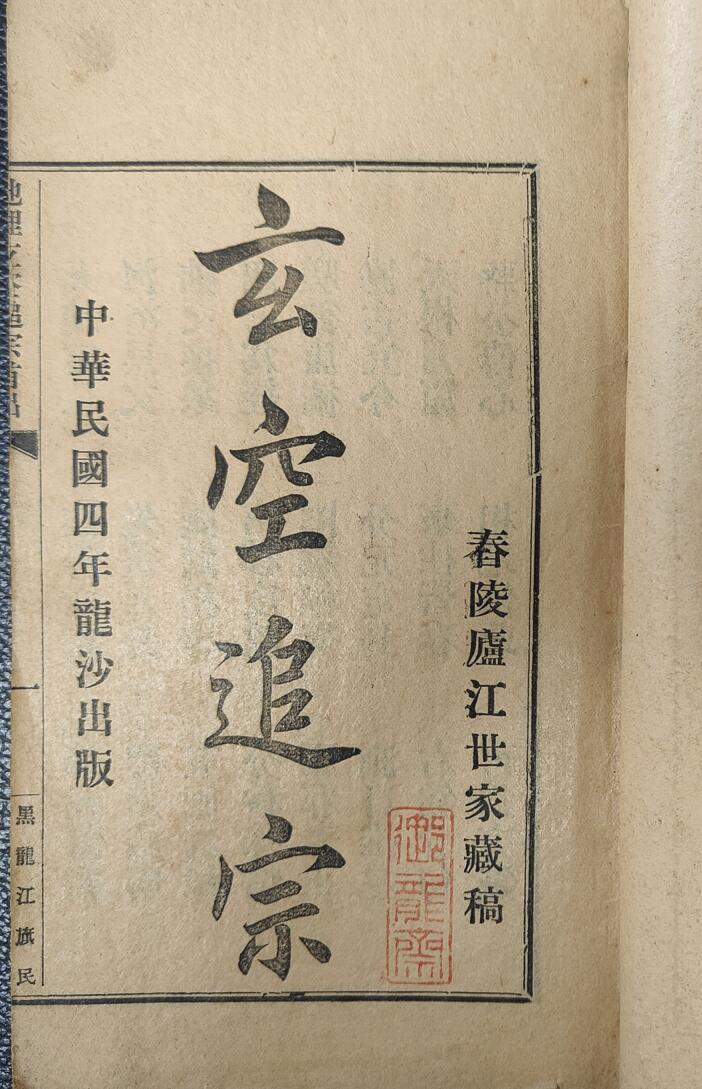 舂陵廬江世家藏稿
御龍齋
玄空追宗
中華民國四年龍沙出版
一
黑龍江旗民